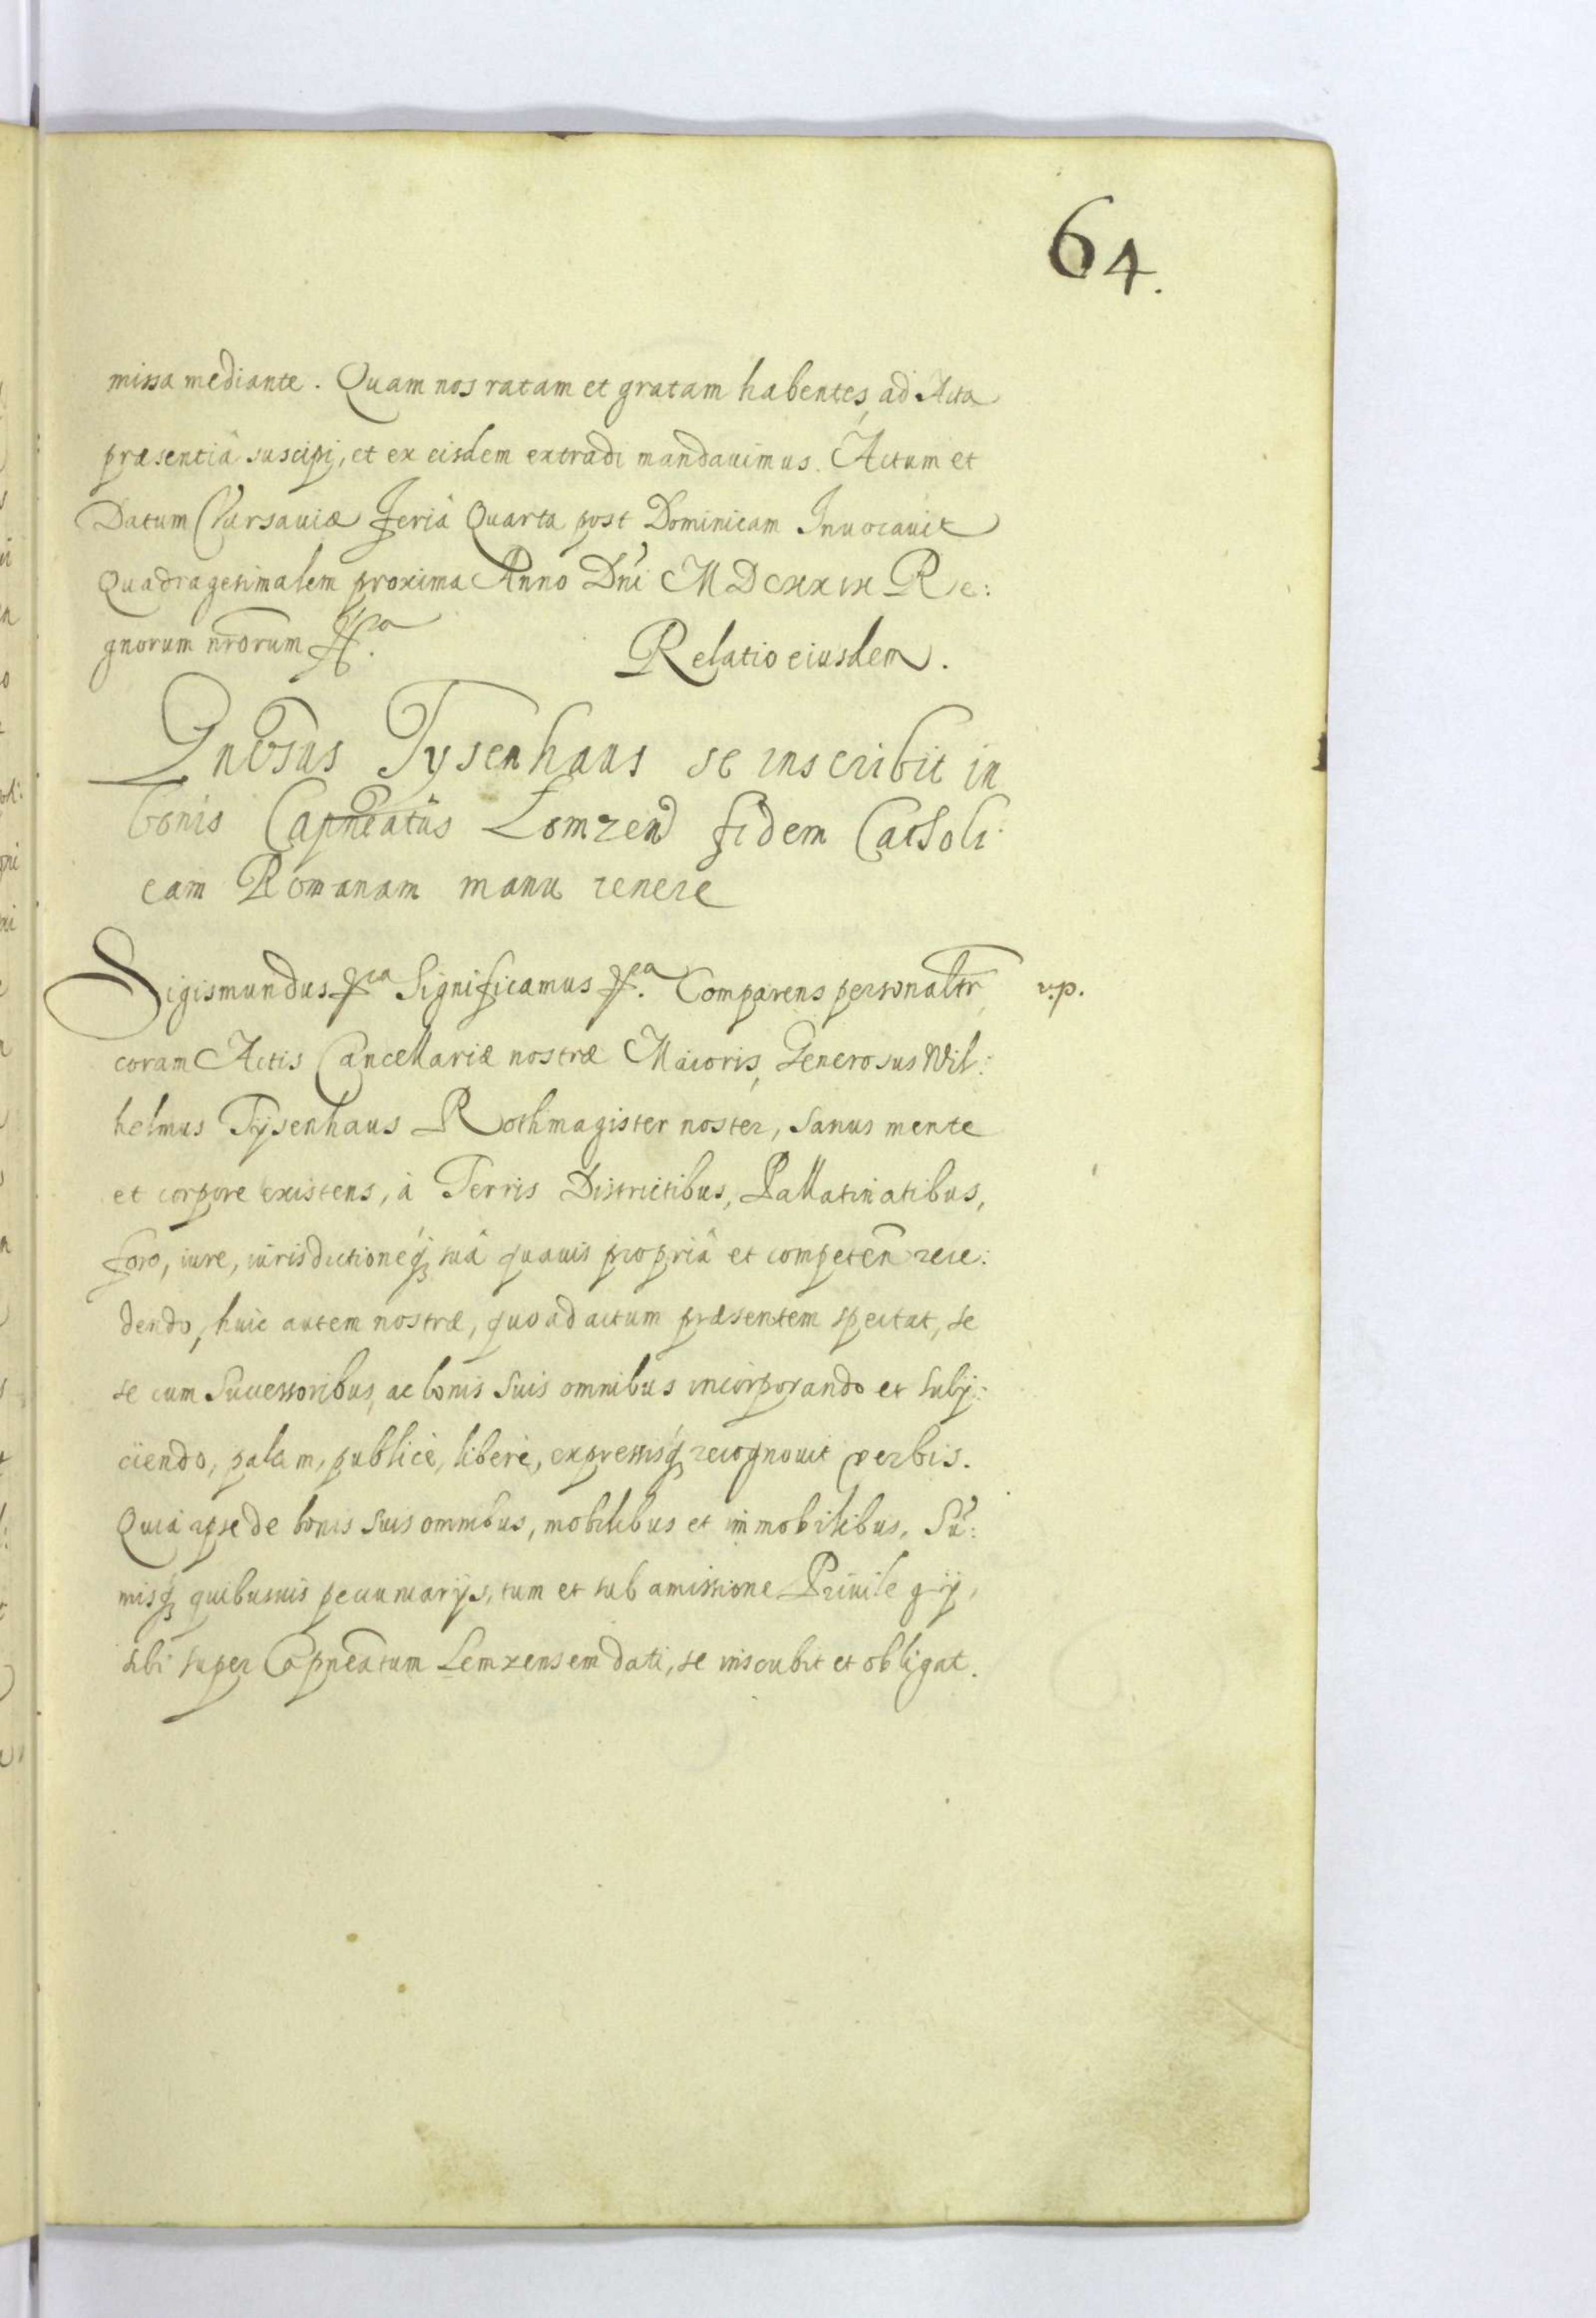 64.
missa mediante. Quam nos ratam et gratam habentes, ad Acta
præsentiâ suscipi, et ex eisdem extradi mandauimus. Actum et
Datum Varsauiæ Feriâ Quarta post Dominicam Inuocauit
Quadragesimalem proxima Anno Dñi MDCXXIX Re:
gnorum nrõrum &ca.
Relatio eiusdem.
Gnõsus Tysenhaus se inscribit in
bonis Capneatûs Lomzen fidem Catholi
cam Romanam manu tenere
Sigismundus &ca Significamus &ca. Comparens personaltr v.p.
coram Actis Cancellariæ nostræ Maioris, Generosus Wil:
helmus Tysenhaus Rothmagister noster, sanus mente
et corpore existens, à Terris Districtibus, Pallatinatibus,
foro, iure, iurisdictioneq; suâ quauis propriâ et competeñ rece:
dendo, huic autem nostræ, quoad actum præsentem spectat, se
se cum Successoribus, ac bonis suis omnibus incorporando et subij:
ciendo, palam, publicè, liberè, expressisq; recognouit verbis.
Quia ipse de bonis suis omnibus, mobilibus et immobilibus, Sũ:
misq; quibusuis pecuniarijs, tum et sub amissione Priuilegij,
sibi super Capneatum Lemzensem dati, se inscribit et obligat.